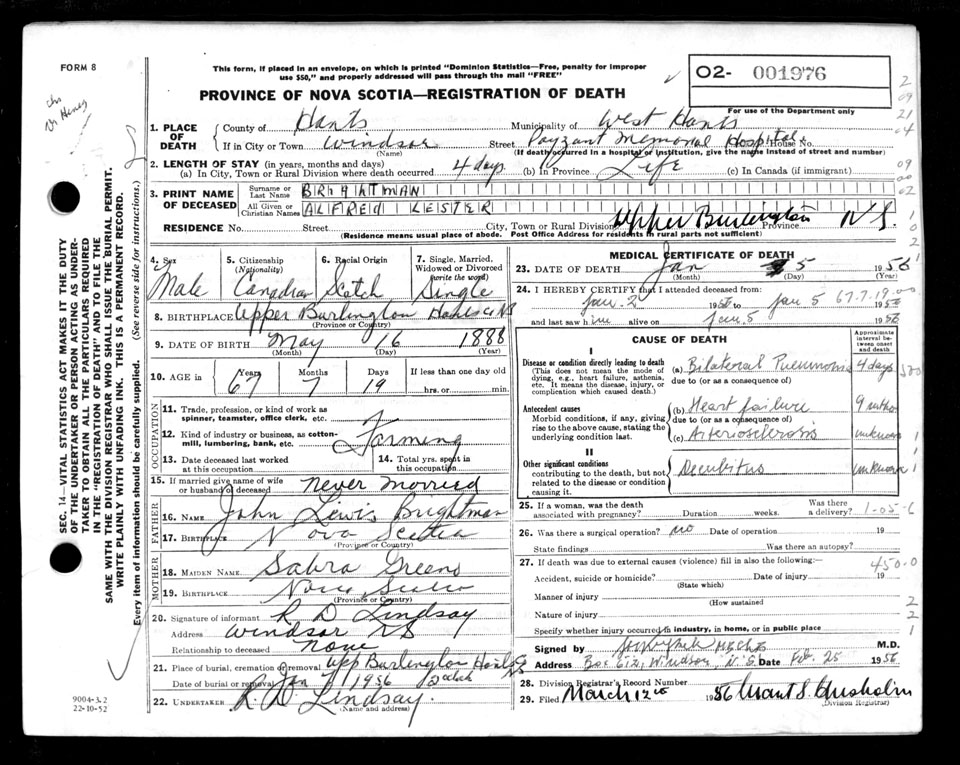 FORM 8
This form, if placed in an envelope, on which is printed "Dominion Statistics—Free, penalty for improper
use $50," and properly addressed will pass through the mail "FREE"
02- 001976
PROVINCE OF NOVA SCOTIA—REGISTRATION OF DEATH
For use of the Department only
1. PLACE OF DEATH
County of Hants Municipality of West Hants
If in City or Town Windsor Street Payzant Memorial Hospital House No.
(Name) (If death occurred in a hospital or institution, give the name instead of street and number)
2. LENGTH OF STAY (in years, months and days)
(a) In City, Town or Rural Division where death occurred 4 days (b) In Province Life (c) In Canada (if immigrant)
3. PRINT NAME OF DECEASED
Surname or Last Name BRIGHTMAN
All Given or Christian Names ALFRED LESTER
RESIDENCE No. Street City, Town or Rural Division Upper Burlington Province N S.
(Residence means usual place of abode. Post Office Address for residents in rural parts not sufficient)
4. Sex Male
5. Citizenship (Nationality) Canadian
6. Racial Origin Scotch
7. Single, Married, Widowed or Divorced (write the word) Single
8. BIRTHPLACE Upper Burlington Hants Co NS
(Province or Country)
9. DATE OF BIRTH May 16 1888
(Month) (Day) (Year)
10. AGE in Years Months Days If less than one day old
67 7 19 hrs. or min.
OCCUPATION
11. Trade, profession, or kind of work as spinner, teamster, office clerk, etc.
12. Kind of industry or business, as cotton-mill, lumbering, bank, etc. Farming
13. Date deceased last worked at this occupation
14. Total yrs. spent in this occupation
15. If married give name of wife or husband of deceased Never Married
FATHER
16. NAME John Lewis Brightman
17. BIRTHPLACE Nova Scotia
(Province or Country)
MOTHER
18. MAIDEN NAME Sabra Greeno
19. BIRTHPLACE Nova Scotia
(Province or Country)
20. Signature of informant R D Lindsay
Address Windsor NS
Relationship to deceased none
21. Place of burial, cremation or removal Upp Burlington Hants Co
Date of burial or removal Jan 7 1956
22. UNDERTAKER R. D. Lindsay
(Name and address)
MEDICAL CERTIFICATE OF DEATH
23. DATE OF DEATH Jan 5 1956
(Month) (Day)
24. I HEREBY CERTIFY that I attended deceased from:
Jan. 2 1956 to Jan 5 1956
67.7.19.00
and last saw him alive on Jan. 5 1956
CAUSE OF DEATH
Approximate interval between onset and death
I
Disease or condition directly leading to death
(This does not mean the mode of dying, e.g., heart failure, asthenia, etc. It means the disease, injury, or complication which caused death.)
(a) Bilateral Pneumonia 4 days
due to (or as a consequence of)
Antecedent causes
Morbid conditions, if any, giving rise to the above cause, stating the underlying condition last.
(b) Heart failure
due to (or as a consequence of)
(c) Arteriosclerosis unknown
II
Other significant conditions
contributing to the death, but not related to the disease or condition causing it.
Decubitus unknown
25. If a woman, was the death associated with pregnancy? Duration weeks. Was there a delivery?
26. Was there a surgical operation? no Date of operation 19
State findings Was there an autopsy?
27. If death was due to external causes (violence) fill in also the following:—
Accident, suicide or homicide? Date of injury 19
(State which)
Manner of injury
(How sustained)
Nature of injury
Specify whether injury occurred in industry, in home, or in public place
Signed by M.D.
Address Box 612, Windsor, N.S. Date Feb. 25 1956
28. Division Registrar's Record Number
29. Filed March 12th 1956
(Division Registrar)
SEC. 14—VITAL STATISTICS ACT MAKES IT THE DUTY
OF THE UNDERTAKER OR PERSON ACTING AS UNDER-
TAKER TO OBTAIN ALL THE PARTICULARS REQUIRED
IN THE "REGISTRATION OF DEATH" AND TO FILE THE
SAME WITH THE DIVISION REGISTRAR WHO SHALL ISSUE THE BURIAL PERMIT.
WRITE PLAINLY WITH UNFADING INK. THIS IS A PERMANENT RECORD.
Every item of information should be carefully supplied. (See reverse side for instructions.)
9004-3.2
22-10-52